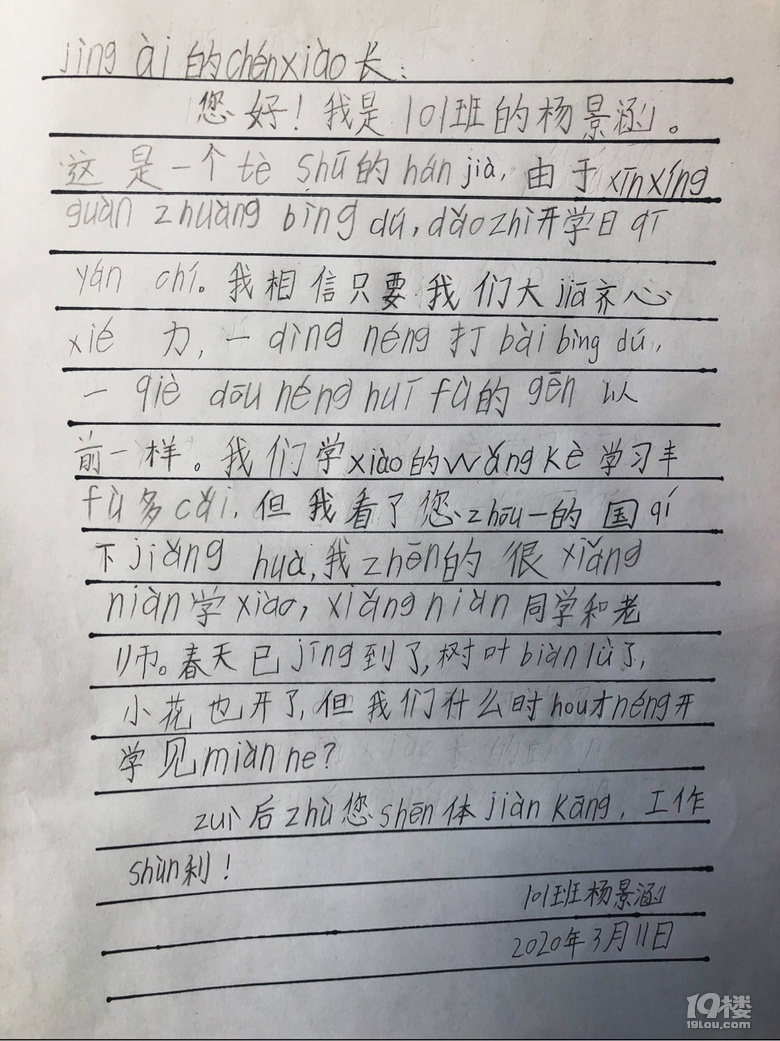 jìng ài 的chénxiào长：
您好！我是101班的杨景涵。
这是一个tè shū的hán jià，由于xīnxíng
guàn zhuàng bìng dú，dǎozhì开学日qī
yán chí。我相信只要我们大jiā齐心
xié 力，一dìng néng打bài bìng dú，
一qiè dōu néng huī fù的gēn 以
前一样。我们学xiào的wǎng kè学习丰
fù多cǎi，但我看了您zhōu一的国qí
下jiǎng huà，我zhēn的很xiǎng
niàn学xiào，xiǎng niàn同学和老
师。春天已jīng到了，树叶biàn lǜ了，
小花也开了，但我们什么时hou才néng开
学见miàn ne？
zuì后zhù您shēn体jiàn kāng，工作
shùn利！
101班杨景涵
2020年3月11日
19楼
19lou.com